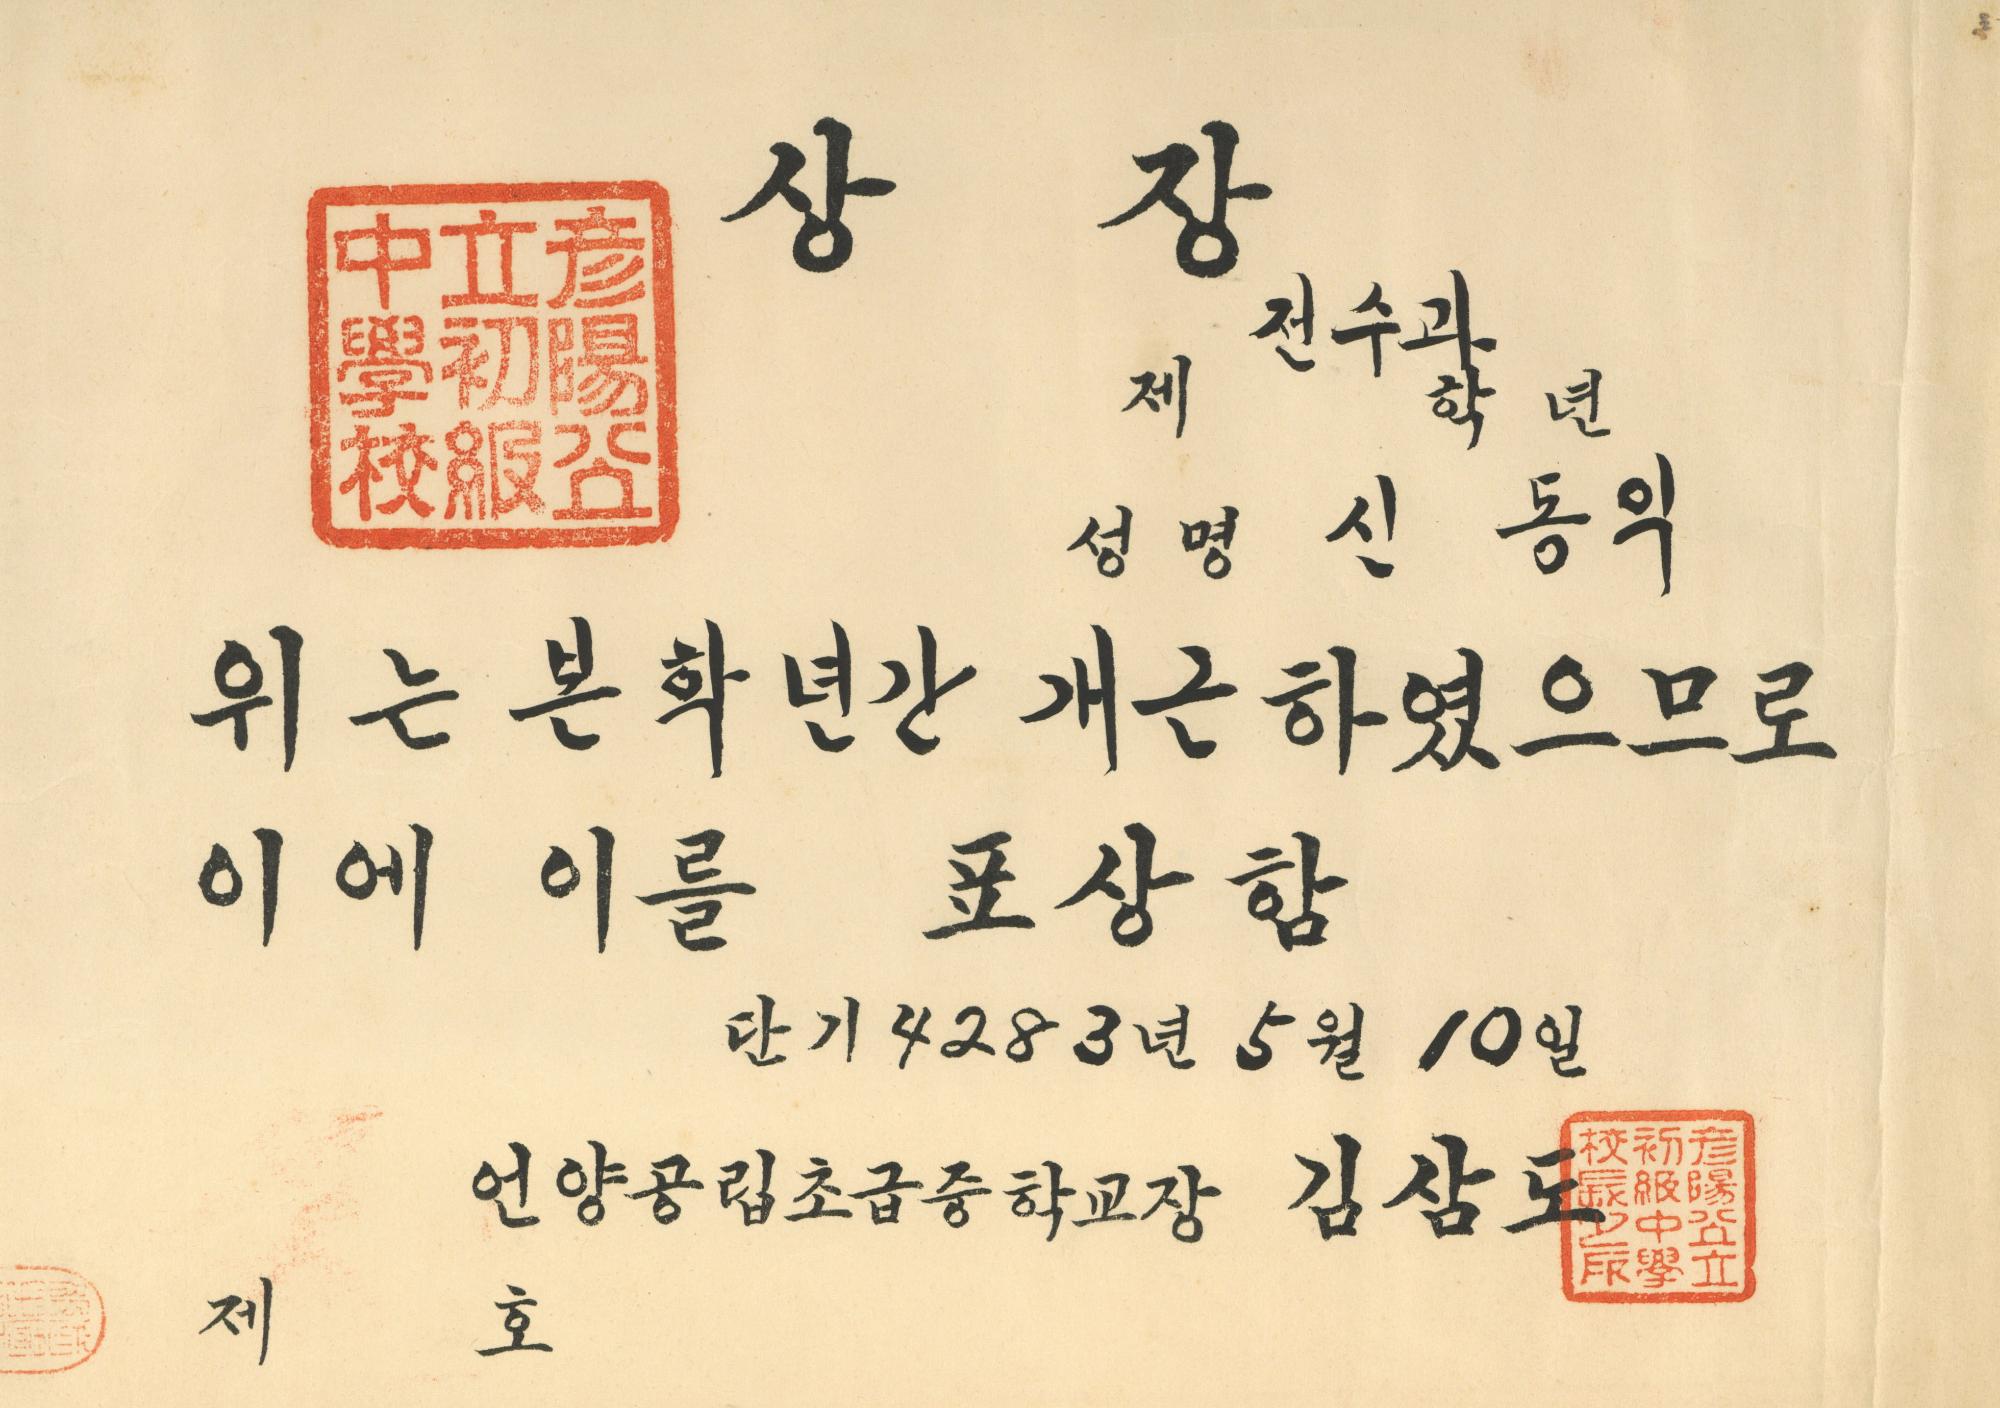 상 장
전수과
제 학년
성명 신동익
위는 본학년간 개근하였으므로
이에 이를 표상함
단기4283년 5월 10일
언양공립초급중학교장 김삼도
제 호
彦陽公立初級中學校
彦陽公立初級中學校長之印